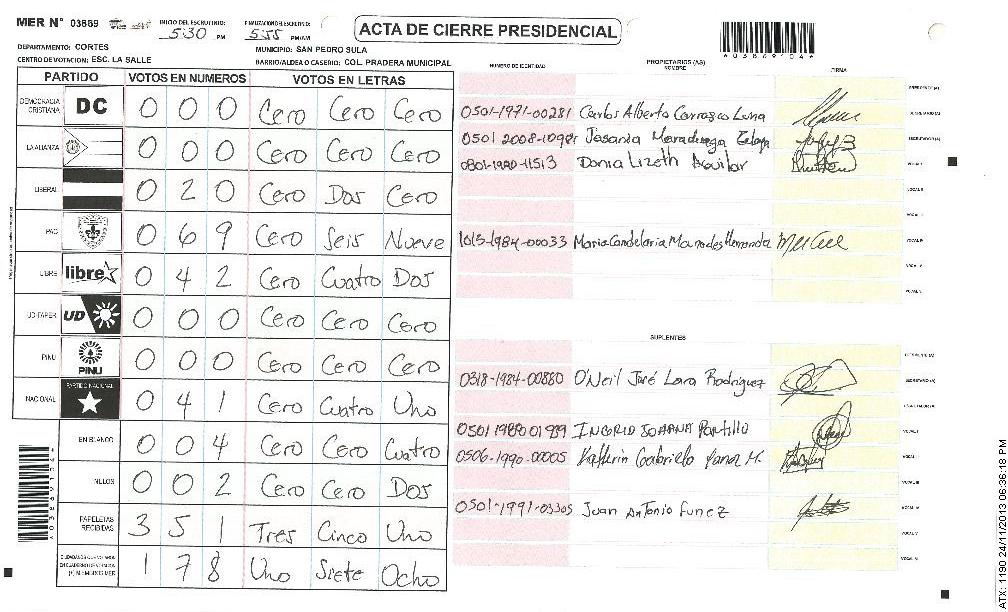 MER N° 03869
INICIO DEL ESCRUTINIO: 5:30 PM
FINALIZACION DEL ESCRUTINIO: 5:55 PM/AM
ACTA DE CIERRE PRESIDENCIAL
DEPARTAMENTO: CORTES
MUNICIPIO: SAN PEDRO SULA
CENTRO DE VOTACION: ESC. LA SALLE
BARRIO/ALDEA O CASERIO: COL. PRADERA MUNICIPAL
PARTIDO VOTOS EN NUMEROS VOTOS EN LETRAS
DEMOCRACIA CRISTIANA DC 0 0 0 Cero Cero Cero
LA ALIANZA 0 0 0 Cero Cero Cero
LIBERAL 0 2 0 Cero Dos Cero
PAC 0 6 9 Cero Seis Nueve
LIBRE libre 0 4 2 Cero Cuatro Dos
UD-FAPER UD 0 0 0 Cero Cero Cero
PINU PINU 0 0 0 Cero Cero Cero
NACIONAL PARTIDO NACIONAL 0 4 1 Cero Cuatro Uno
EN BLANCO 0 0 4 Cero Cero Cuatro
NULOS 0 0 2 Cero Cero Dos
PAPELETAS RECIBIDAS 3 5 1 Tres Cinco Uno
1 7 8 Uno Siete Ocho
NUMERO DE IDENTIDAD
PROPIETARIOS (AS)
NOMBRE
FIRMA
PRESIDENTE (A)
0501-1971-00281 Carlos Alberto Carrasco Luna SECRETARIO (A)
0501 2008-10981 Josania
0801-1980-11513 Dania Lizeth Aguilar VOCAL I
VOCAL II
VOCAL III
1013-1984-00033 Maria Candelaria Hernanda VOCAL IV
VOCAL V
VOCAL VI
SUPLENTES
0318-1984-00880 O'Neil José Lara Rodriguez SECRETARIO (A)
0501 1989 01989 INGRID JOHANA Portillo VOCAL I
0506-1990-00005 Gabriela M. VOCAL II
VOCAL III
0501-1991-03305 Juan Antonio Funez VOCAL IV
VOCAL V
VOCAL VI
ATX: 1190 24/11/2013 06:36:18 PM